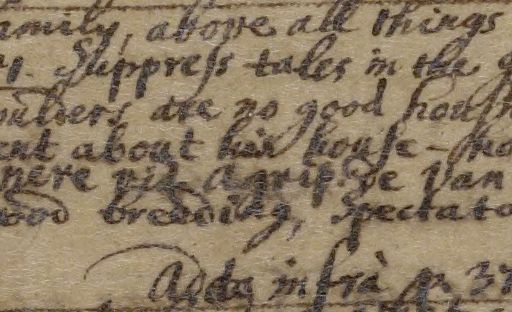 amily, above all things
Suppress tales in the
are no good hous
ent about his house-
nere Agrip: de van
ood breeding, Spectato
Adde infrà p. 37